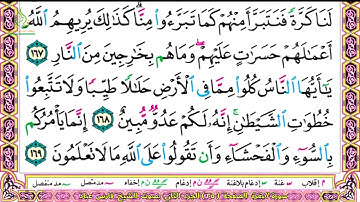 لَنَا كَرَّةً فَنَتَبَرَّأَ مِنْهُمْ كَمَا تَبَرَّءُوا۟ مِنَّا ۗ كَذَٰلِكَ يُرِيهِمُ ٱللَّهُ
أَعْمَٰلَهُمْ حَسَرَٰتٍ عَلَيْهِمْ ۖ وَمَا هُم بِخَٰرِجِينَ مِنَ ٱلنَّارِ ١٦٧
يَٰٓأَيُّهَا ٱلنَّاسُ كُلُوا۟ مِمَّا فِى ٱلْأَرْضِ حَلَٰلًا طَيِّبًا وَلَا تَتَّبِعُوا۟
خُطُوَٰتِ ٱلشَّيْطَٰنِ ۚ إِنَّهُۥ لَكُمْ عَدُوٌّ مُّبِينٌ ١٦٨ إِنَّمَا يَأْمُرُكُم
بِٱلسُّوٓءِ وَٱلْفَحْشَآءِ وَأَن تَقُولُوا۟ عَلَى ٱللَّهِ مَا لَا تَعْلَمُونَ ١٦٩